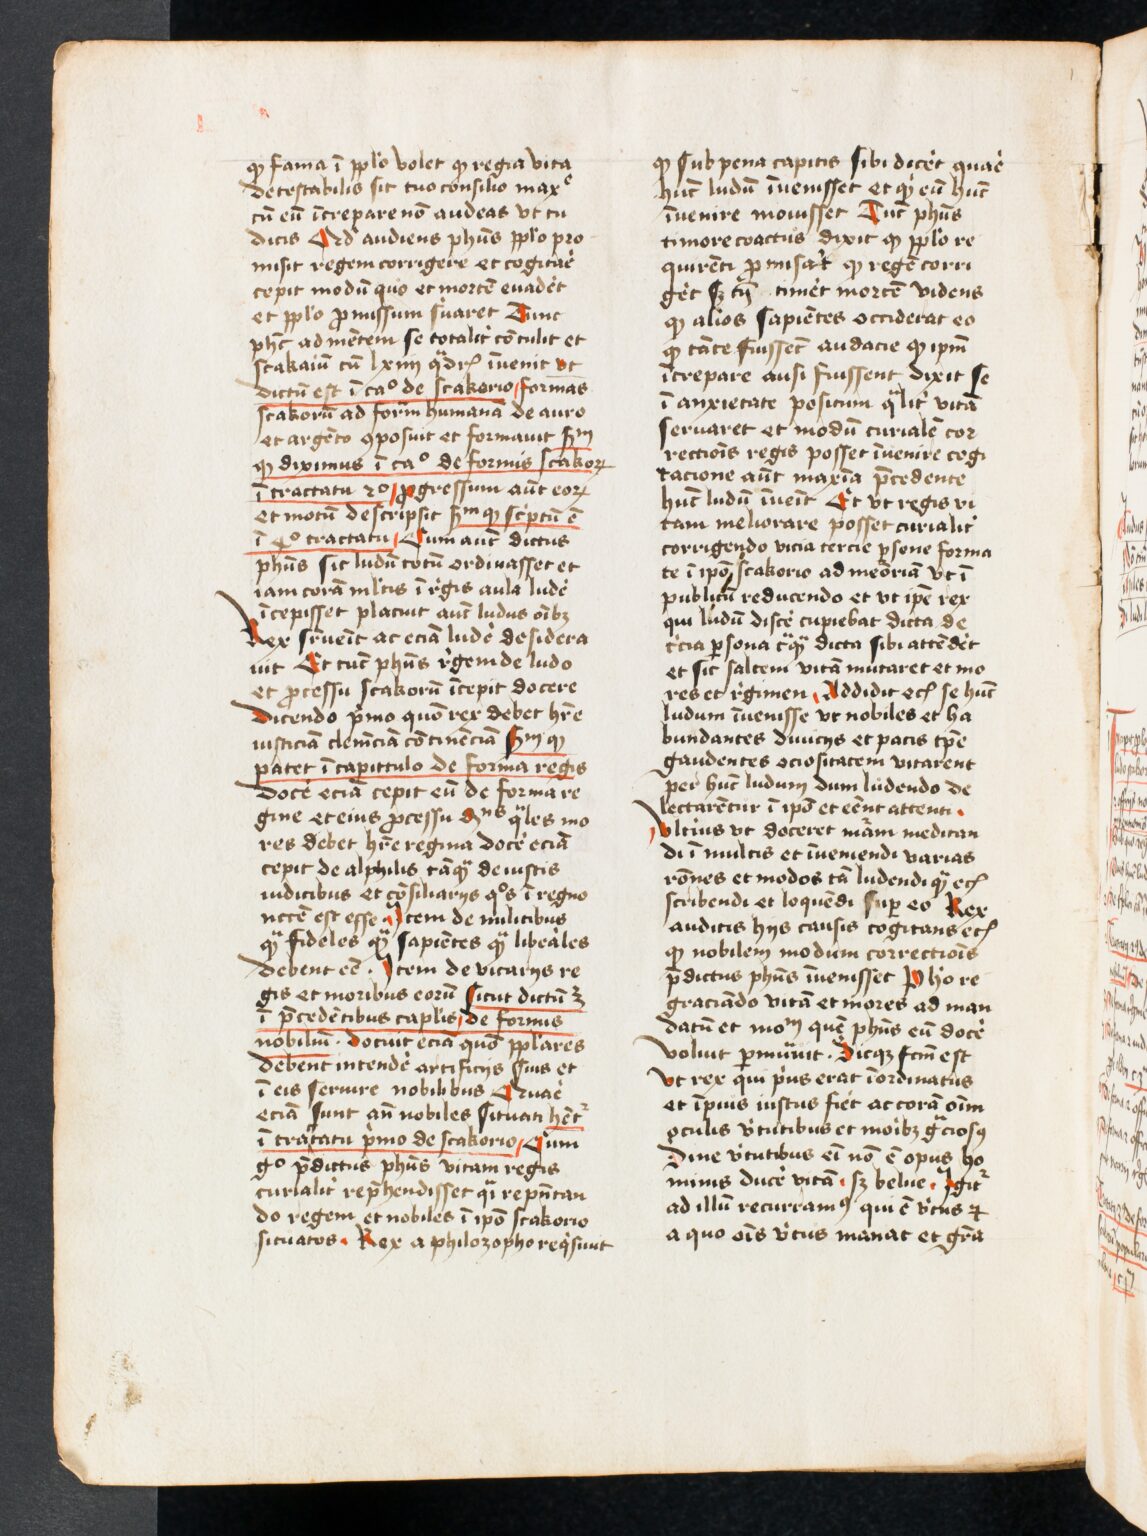 ꝙ fama ī pplo volet ꝙ regia vita
detestabilis sit tuo consilio maxᵉ
cū eū īcrepare nō audeas vt tu
dicis Ad audiens phūs pplo pro
misit regem corrigere et cogitare
cepit modū quo et mortē evadet
et pplo promissum suaret Tunc
phūs ad mētem se totalit cōtulit et
scakariū cū lxiiij īvenit vt
dictū est ī caº de scakorio formas
scakorū ad formā humanā de auro
et argēto ꝯposuit et formavit sᵐ
ꝙ diximus ī caº de formis scakoꝝ
ī tractatu 2º progressum aūt eoꝝ
et motū descripsit sᵐ ꝙ scptū ē
ī 4º tractatu Cum aūt dictus
phūs sic ludū totū ordinasset et
iam corā mltis ī regis aula lude
īcepisset placuit aūt ludus oībꝫ
Rex suēit ac eciā lude desidera
uit Et tūc phūs regem de ludo
et processu scakorū īcepit docere
Dicendo pmo quō rex debet hre
iusticiā clemēciā cōtinēciā sᵐ ꝙ
patet ī capittulo de forma regis
Doce eciā cepit eū de forma re
gine et eius processu qales mo
res debet hre regina doce eciā
cepit de alphilis tāꝙ de iustis
iudicibus et cōsiliarijs qºs ī regno
nccē est esse Item de militibus
ꝙ fideles ꝙ sapiētes ꝙ liberales
debent eē. Item de vicarijs re
gis et moribus eorū sicut dictū
ī pcedētibus caplis de formis
nobiliū. docuit eciā quō pplares
debent intende artificijs suis et
ī eis servire nobilibus Quare
eciā sunt an nobiles situati hētʳ
ī tractatu pmo de scakorio Cum
gº pdictus phūs vitam regis
curialit rephendisset qi repntan
do regem et nobiles ī ipō scakorio
situatos. Rex a philozopho reqsiuit
ꝙ sub pena capitis sibi dicēt quare
hūc ludū īvenisset et qs eū hūc
īvenire movisset Tūc phūs
timore coactus dixit ꝙ pplo re
quirēti promisat ꝙ regē corri
get sꝫ tū timet mortē videns
ꝙ alios sapiētes occiderat eo
ꝙ tāte fuissēt audacie ꝙ ipm
īcrepare ausi fuissent dixit se
ī anxietate positum qlit vitā
servaret et modū curialē cor
rectiōis regis posset īvenire cogi
tacione aūt maxīa pcedente
hūc ludū īvēit Et vt regis vi
tam meliorare posset curialit
corrigendo vicia tercie psone forma
te ī ipō scakorio ad meōriā vt ī
publicū reducendo et vt ipē rex
qui ludū disce cupiebat dicta de
tcia psona dicta sibi attēdet
et sic saltem vitā mutaret et mo
res et regimen Addidit ecⁱ se hūc
ludum īvenisse vt nobiles et ha
bundantes divicijs et pacis tpē
gaudentes eciositatem vitarent
per hūc ludum dum ludendo de
lectarētur ī ipō et eēnt attenti.
Vltius vt doceret mām meditan
di ī multis et īveniendi varias
rōnes et modos tā ludendi ꝙ ecⁱ
scribendi et loquēdi super eo Rex
auditis hijs causis cogitans ecⁱ
ꝙ nobilem modum correctiōis
pdictus phūs īvenisset Pho re
graciādo vitā et mores ad man
datū et moᵐ quē phūs eū doce
voluit pmutavit. Sicꝫ fcm est
vt rex qui pus erat īordinatus
et īpius iustus fiet ac corā oīm
oculis vtutibus et moībꝫ gciosꝯ
Sine vtutibus eī nō ē opus ho
minis duce vitā. sꝫ belue. Igitʳ
ad illū recurramꝯ qui ē vtus ⁊
a quo oīs vtus manat et gra